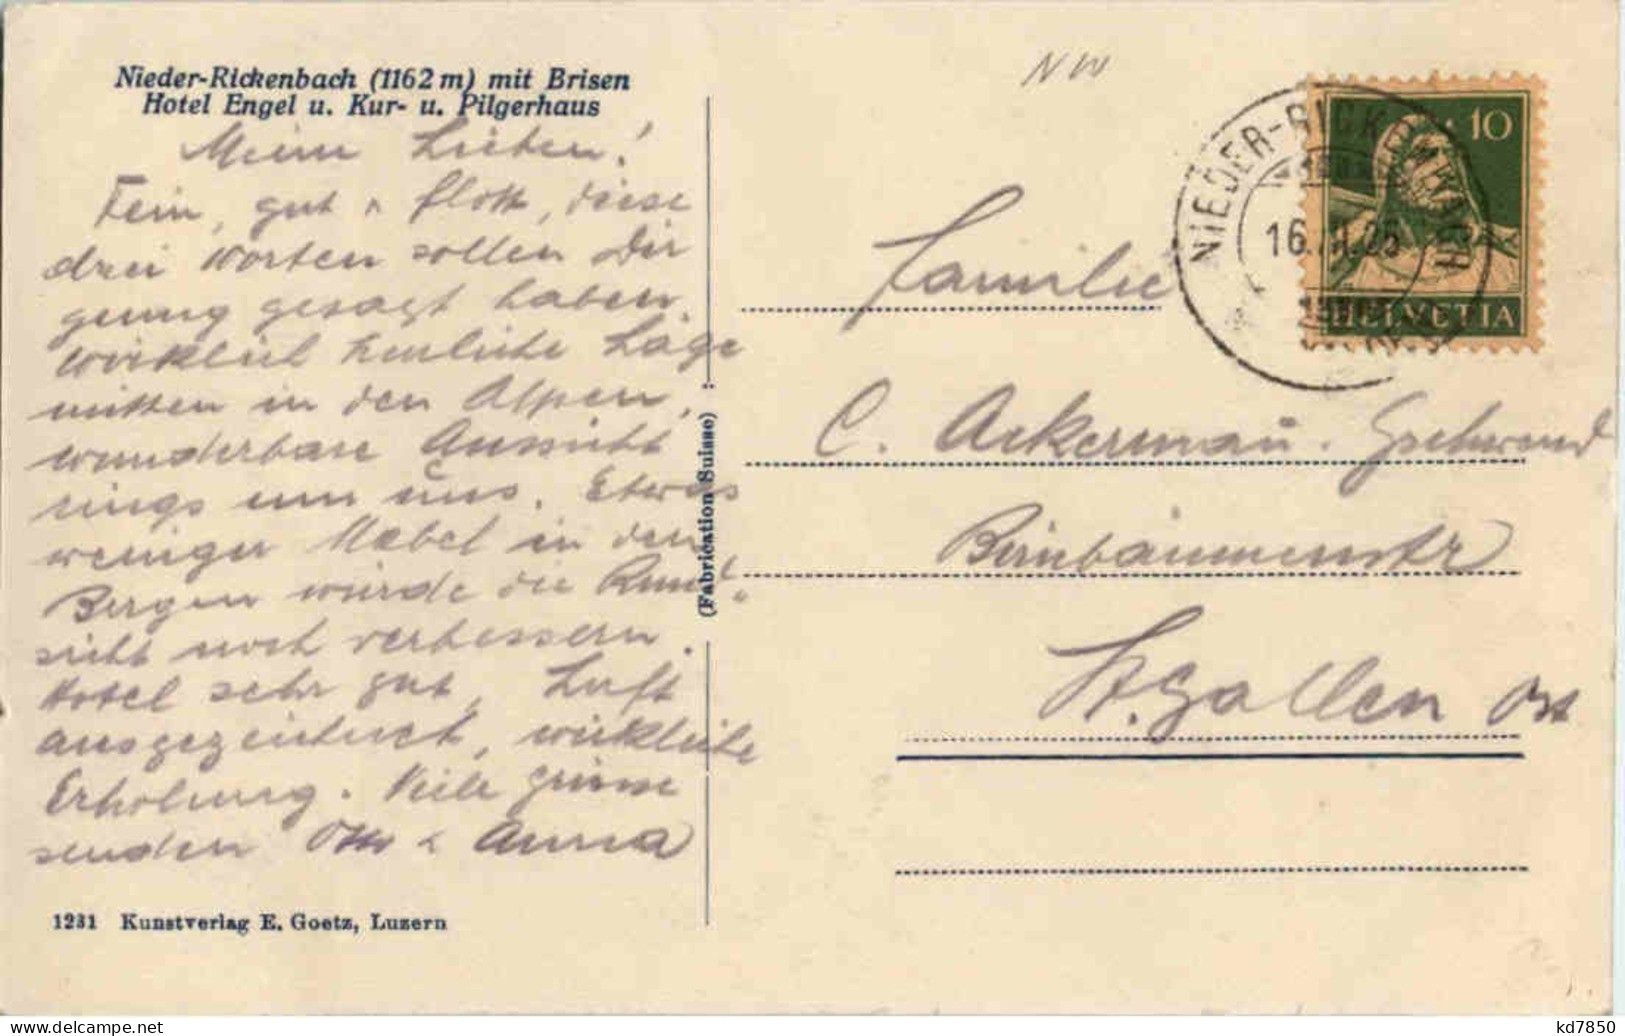 Nieder-Rickenbach (1162 m) mit Brisen
Hotel Engel u. Kur- u. Pilgerhaus
Meine Lieben!
Fein, gut & flott, diese
drei Worten sollen Dir
genug gesagt haben.
wirklich herrliche Lage
mitten in den Alpen,
wunderbare Aussicht
rings um uns. Etwas
weniger Nebel in den
Bergen würde die Rund„
sicht noch verbessern.
Hotel sehr gut, Luft
ausgezeichnet, wirkliche
Erholung. Viele Grüsse
senden Otto & Anna
1231 Kunstverlag E. Goetz, Luzern
(Fabrication Suisse)
NW
NIEDER-RICKENBACH
10
HELVETIA
Familie
C. Ackermann. Gschwend
Birnbäumenstr
St. Gallen Ost
kd7850